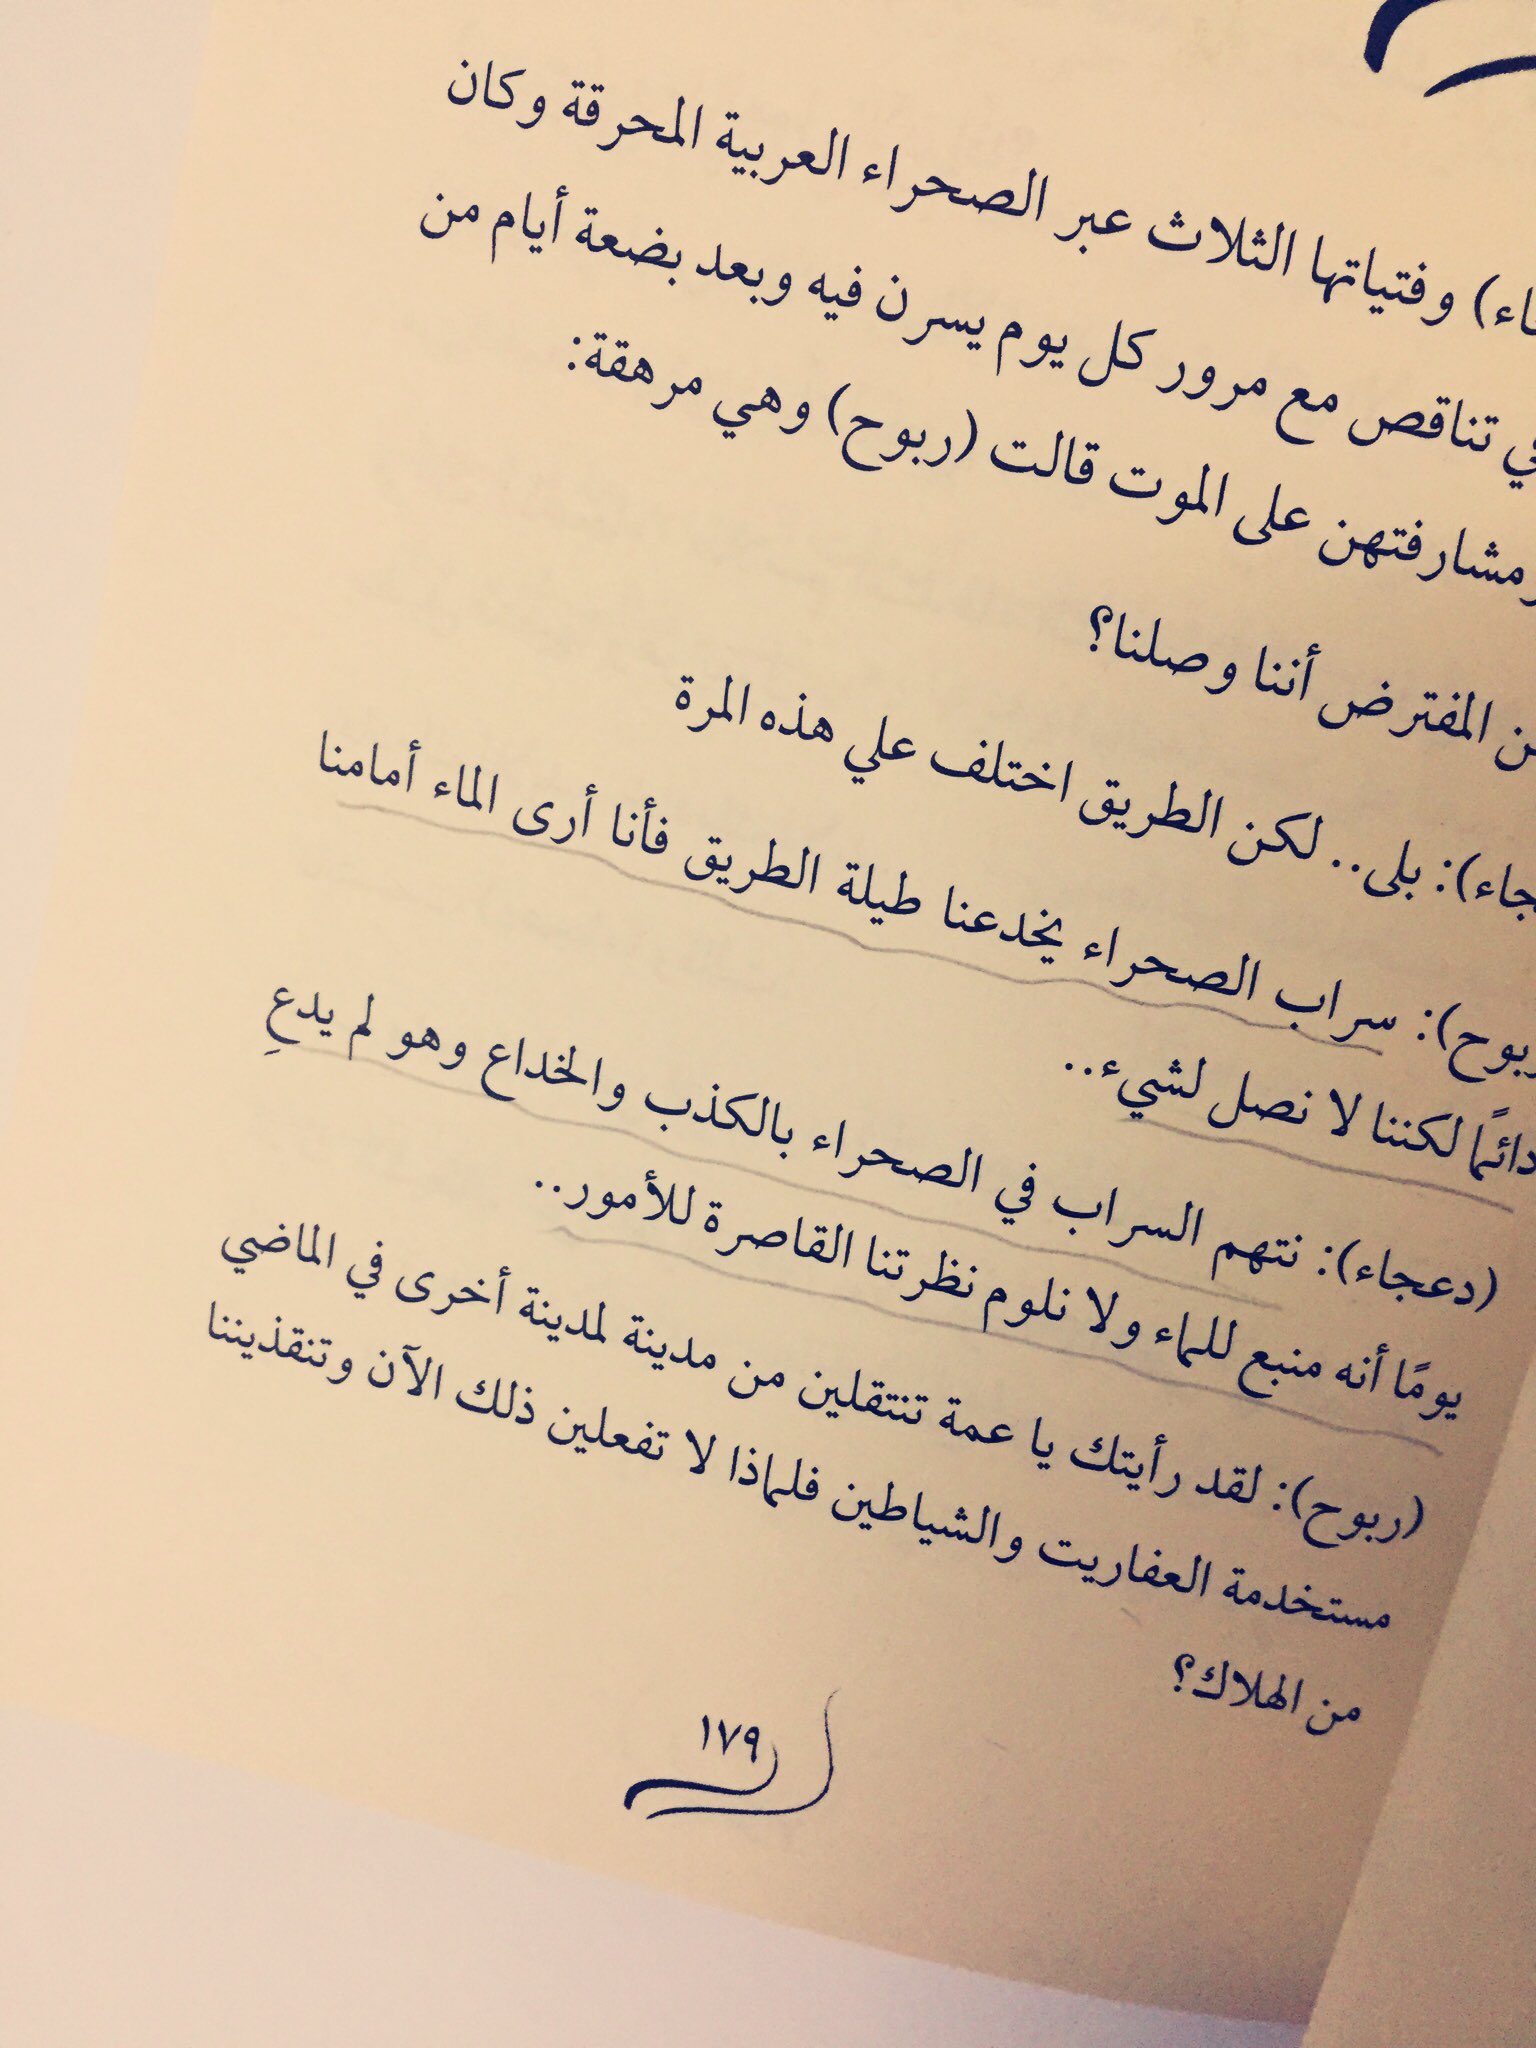 وفتياتها الثلاث عبر الصحراء العربية المحرقة وكان
تناقص مع مرور كل يوم يسرن فيه وبعد بضعة أيام من
مشارفتهن على الموت قالت (ربوح) وهي مرهقة:
المفترض أننا وصلنا؟
بلى.. لكن الطريق اختلف علي هذه المرة
سراب الصحراء يخدعنا طيلة الطريق فأنا أرى الماء أمامنا
دائمًا لكننا لا نصل لشيء..
(دعجاء): نتهم السراب في الصحراء بالكذب والخداع وهو لم يدعِ
يومًا أنه منبع للماء ولا نلوم نظرتنا القاصرة للأمور..
(ربوح): لقد رأيتك يا عمة تنتقلين من مدينة لمدينة أخرى في الماضي
مستخدمة العفاريت والشياطين فلماذا لا تفعلين ذلك الآن وتنقذيننا
من الهلاك؟
١٧٩